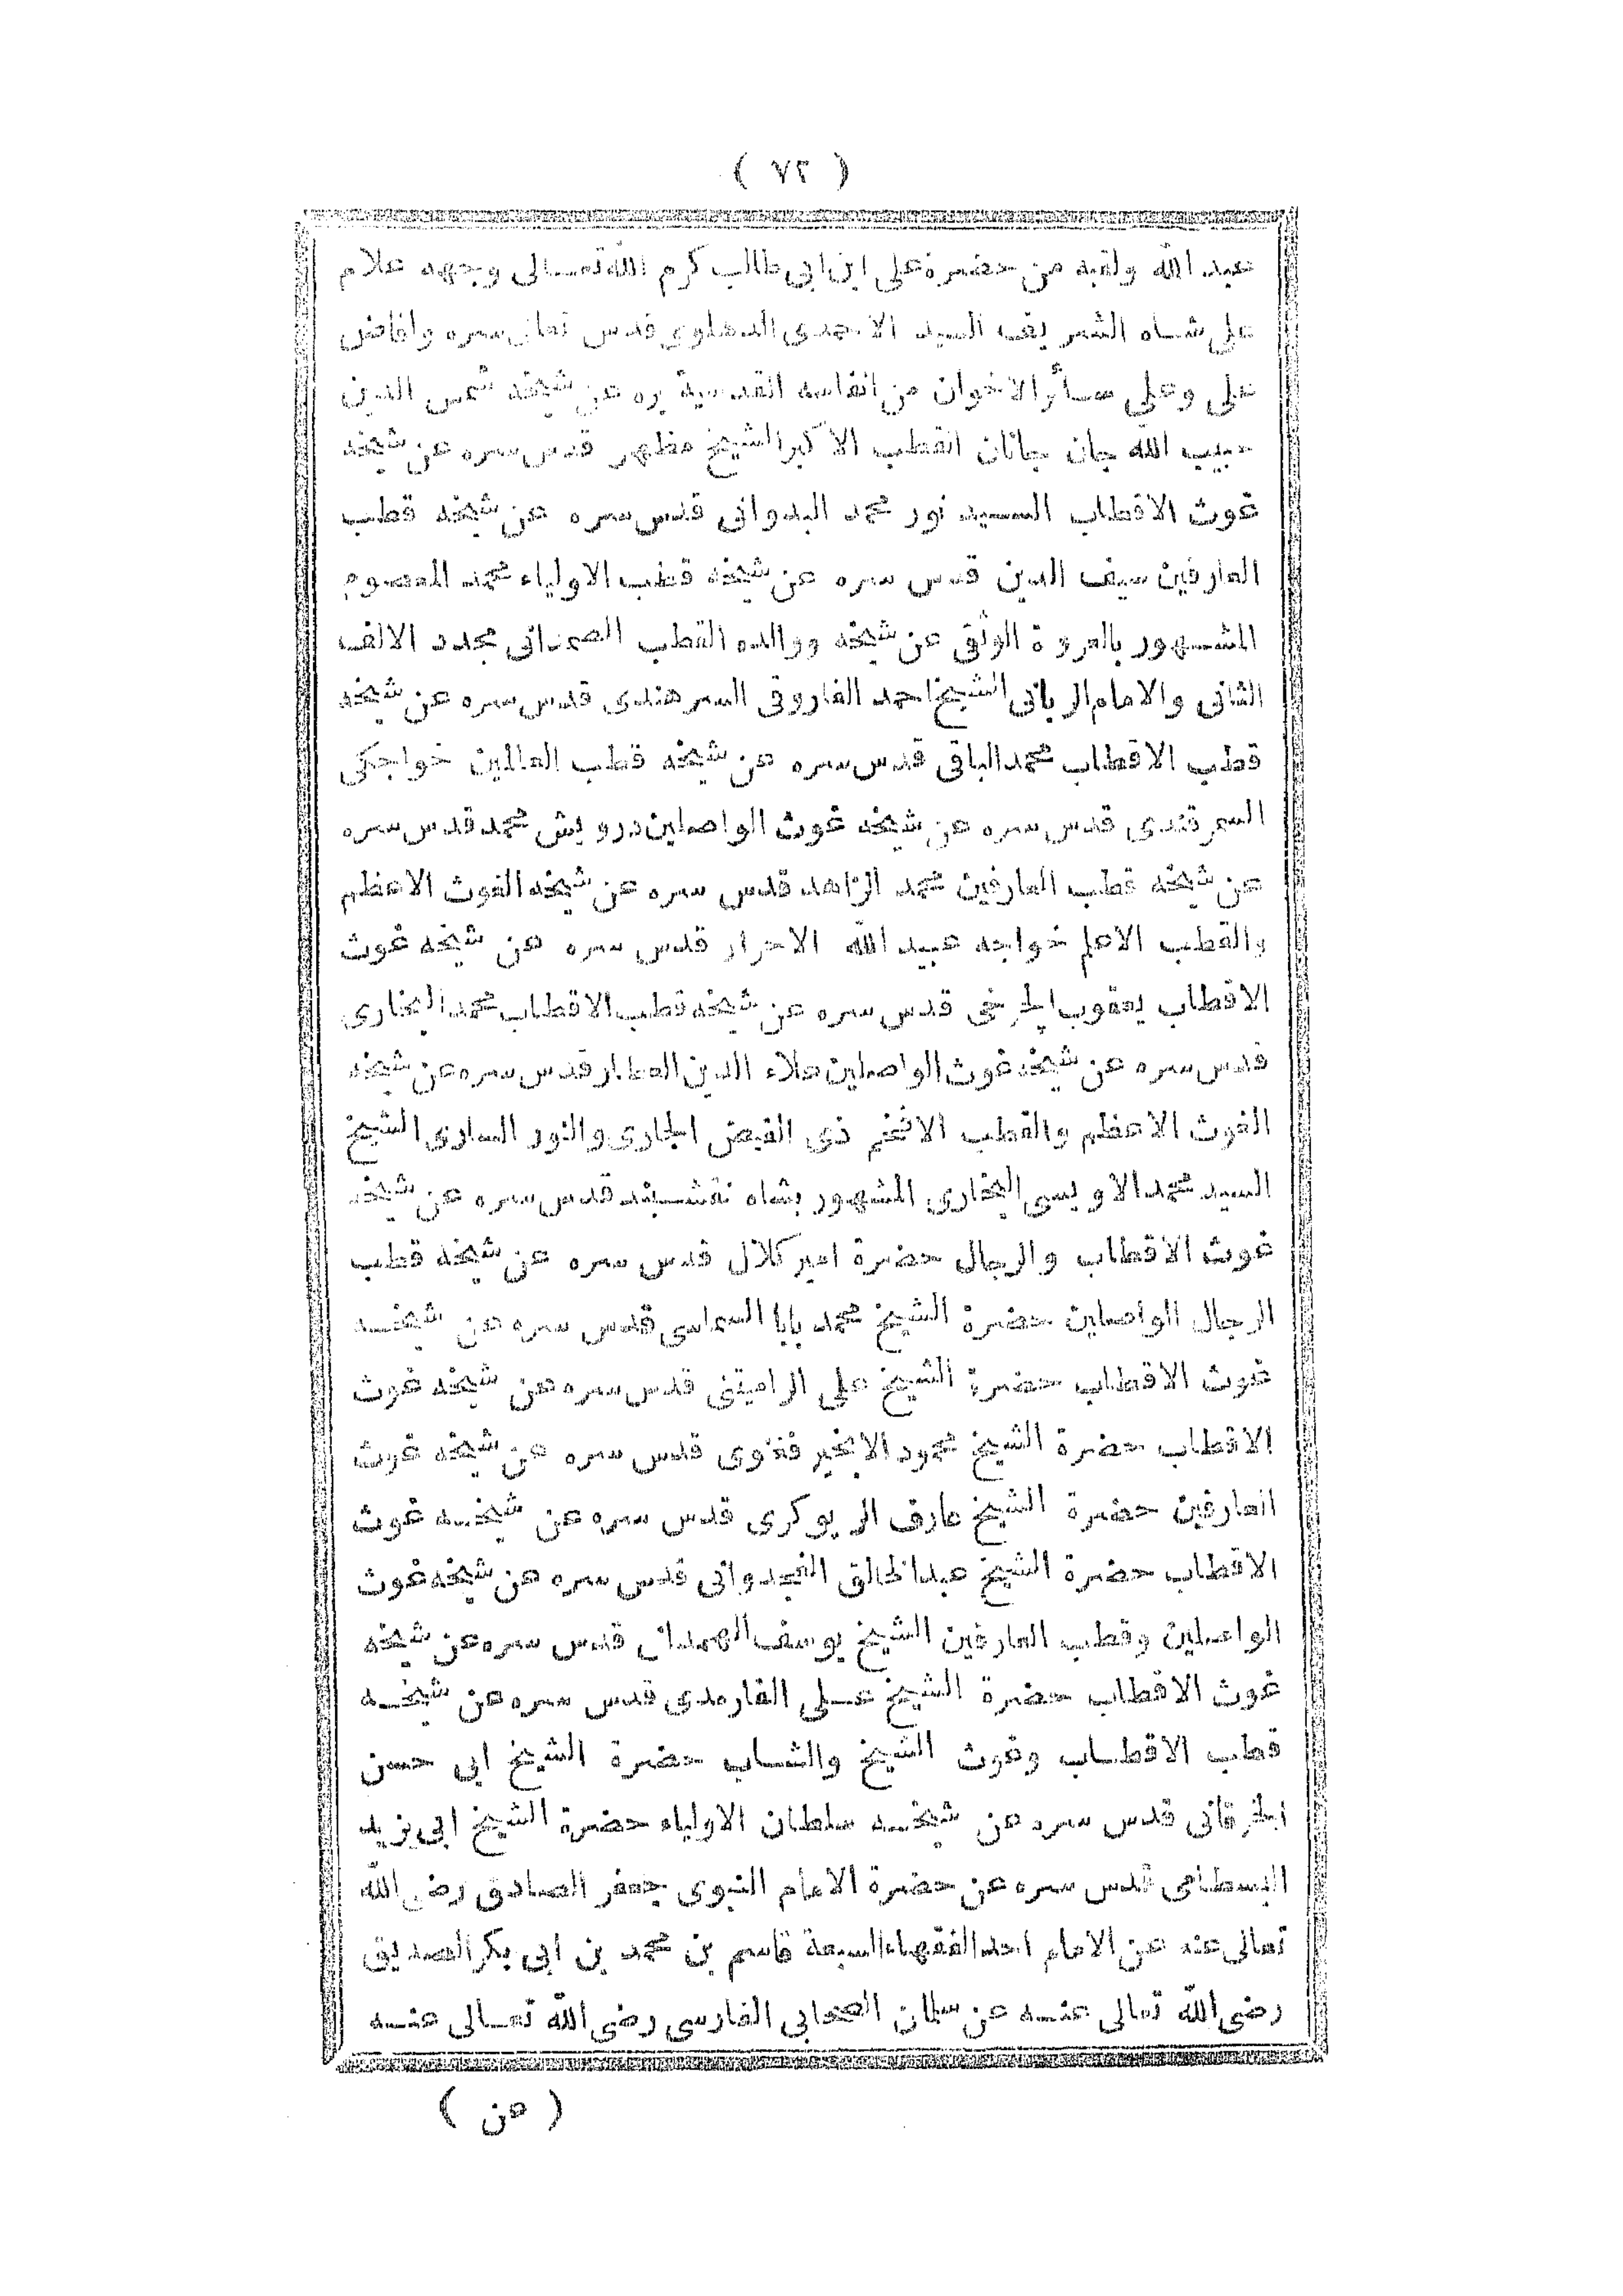 ( ٧٢ )
عبد الله ولقبه من حضرة على ابن ابى طالب كرم الله تعالى وجهه غلام
على شاه الشريف السيد الاحمدى الدهلوى قدس تعالى سره وافاض
على وعلى سائر الاخوان من انفاسه القدسية بره عن شيخه شمس الدين
حبيب الله جان جانان القطب الاكبر الشيخ مظهر قدس سره عن شيخه
غوث الاقطاب السيد نور محمد البدوانى قدس سره عن شيخه قطب
العارفين سيف الدين قدس سره عن شيخه قطب الاولياء محمد المعصوم
المشهور بالعروة الوثقى عن شيخه ووالده القطب الصمدانى مجدد الالف
الثانى والامام الربانى الشيخ احمد الفاروقى السرهندى قدس سره عن شيخه
قطب الاقطاب محمد الباقى قدس سره عن شيخه قطب العالمين خواجكى
السمرقندى قدس سره عن شيخه غوث الواصلين درويش محمد قدس سره
عن شيخه قطب العارفين محمد الزاهد قدس سره عن شيخه الغوث الاعظم
والقطب الاعلم خواجه عبيد الله الاحرار قدس سره عن شيخه غوث
الاقطاب يعقوب الجرخى قدس سره عن شيخه قطب الاقطاب محمد البخارى
قدس سره عن شيخه غوث الواصلين علاء الدين العطار قدس سره عن شيخه
الغوث الاعظم والقطب الافخم ذى الفيض الجارى والنور السارى الشيخ
السيد محمد الاويسى البخارى المشهور بشاه نقشبند قدس سره عن شيخه
غوث الاقطاب والرجال حضرة امير كلال قدس سره عن شيخه قطب
الرجال الواصلين حضرة الشيخ محمد بابا السماسى قدس سره عن شيخه
غوث الاقطاب حضرة الشيخ على الراميتنى قدس سره عن شيخه غوث
الاقطاب حضرة الشيخ محمود الانجير فغنوى قدس سره عن شيخه غوث
العارفين حضرة الشيخ عارف الريوكرى قدس سره عن شيخه غوث
الاقطاب حضرة الشيخ عبد الخالق الغجدوانى قدس سره عن شيخه غوث
الواصلين وقطب العارفين الشيخ يوسف الهمدانى قدس سره عن شيخه
غوث الاقطاب حضرة الشيخ على الفارمدى قدس سره عن شيخه
قطب الاقطاب وغوث الشيخ والشاب حضرة الشيخ ابى حسن
الخرقانى قدس سره عن شيخه سلطان الاولياء حضرة الشيخ ابى يزيد
البسطامى قدس سره عن حضرة الامام النبوى جعفر الصادق رضى الله
تعالى عنه عن الامام احد الفقهاء السبعة قاسم بن محمد بن ابى بكر الصديق
رضى الله تعالى عنه عن سلمان الصحابى الفارسى رضى الله تعالى عنه
( عن )